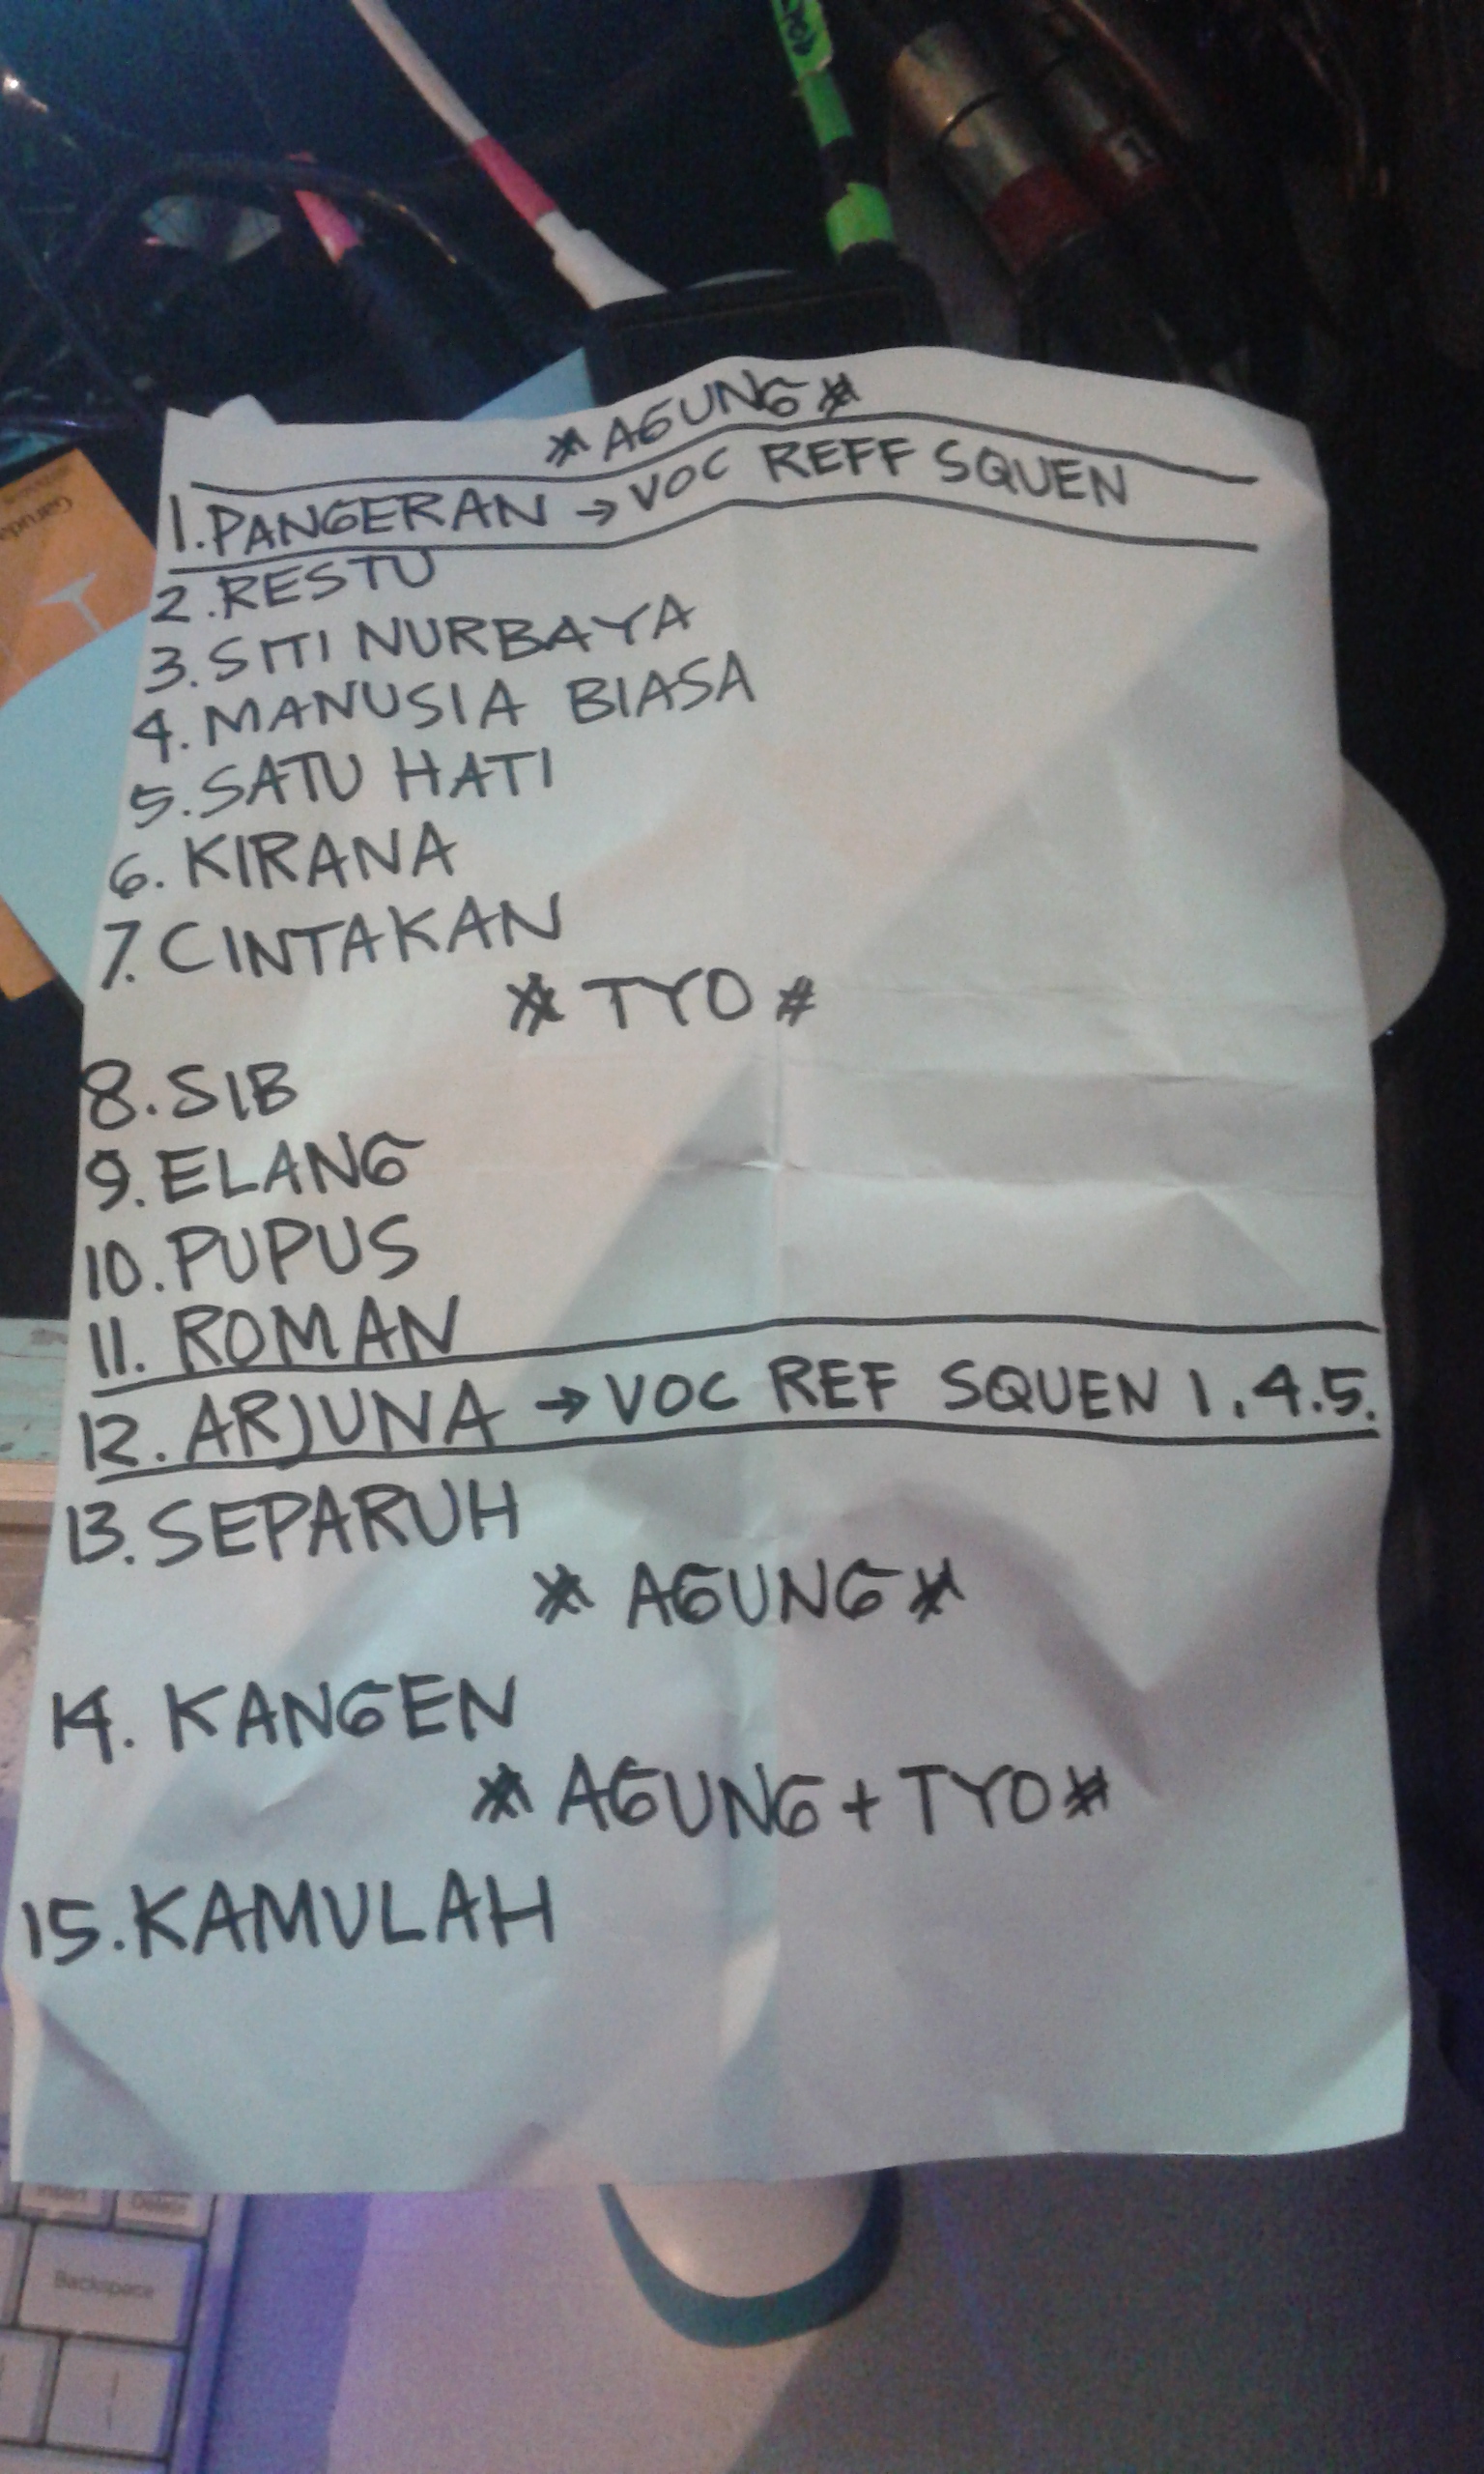 Garuda
1
# AGUNG #
1. PANGERAN → VOC REFF SQUEN
2. RESTU
3. SITI NURBAYA
4. MANUSIA BIASA
5. SATU HATI
6. KIRANA
7. CINTAKAN
# TYO #
8. SIB
9. ELANG
10. PUPUS
11. ROMAN
12. ARJUNA → VOC REF SQUEN 1.4.5.
13. SEPARUH
# AGUNG #
14. KANGEN
# AGUNG + TYO #
15. KAMULAH
Insert Delete
Backspace